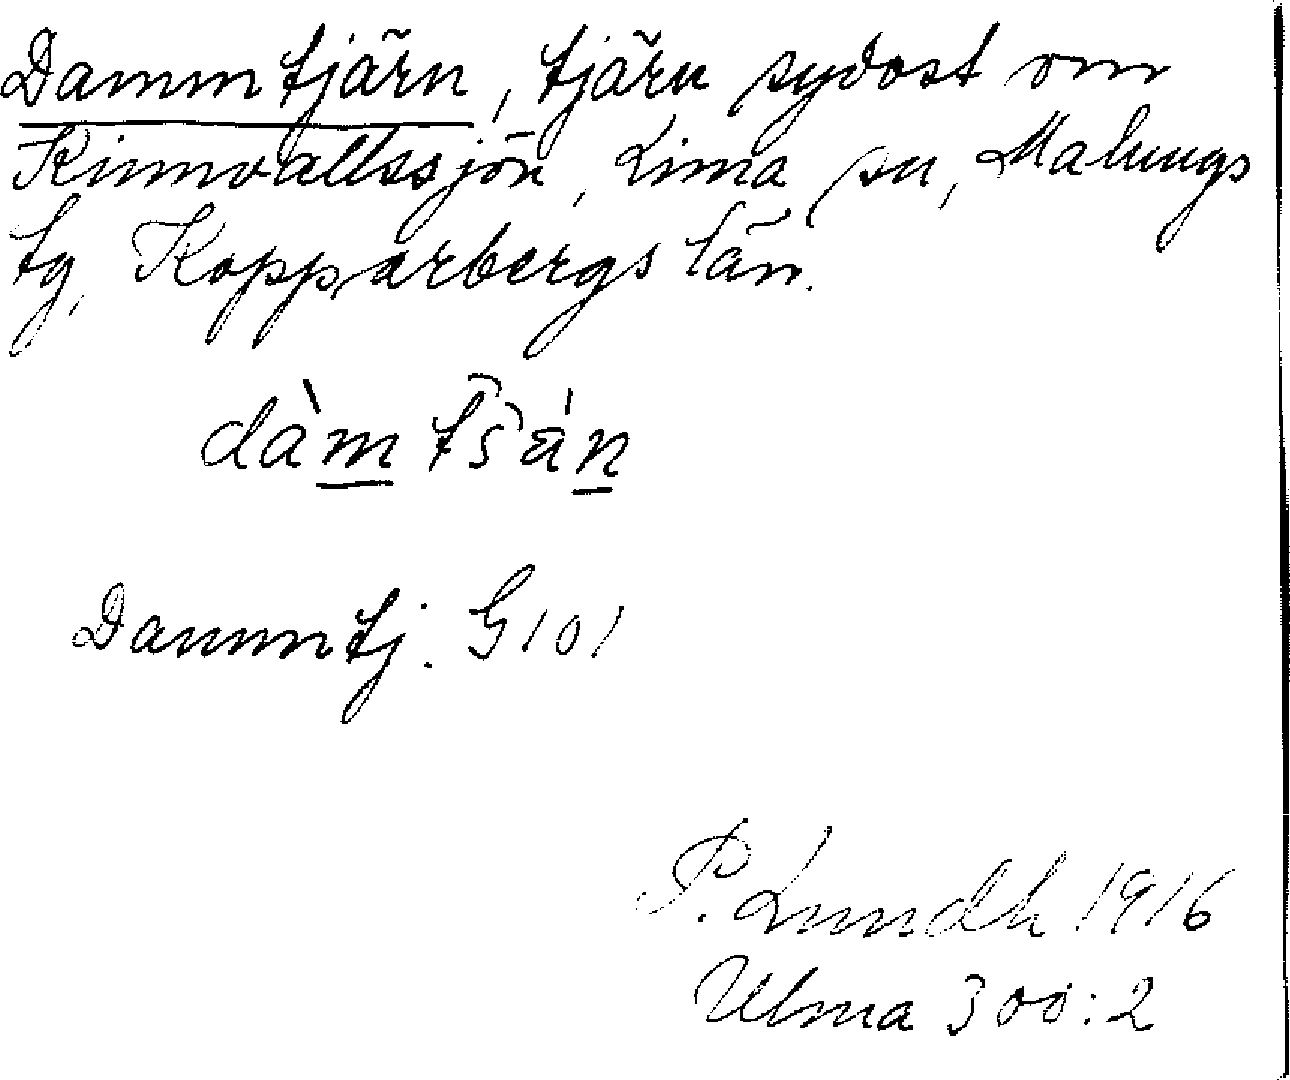 Dammtjärn, tjärn sydost om
Kinnvallssjön, Lima sn, Malungs
tg, Kopparbergs län.
dàm tšán
Dammtj. G101
P. Lundh 1916
Ulma 300:2